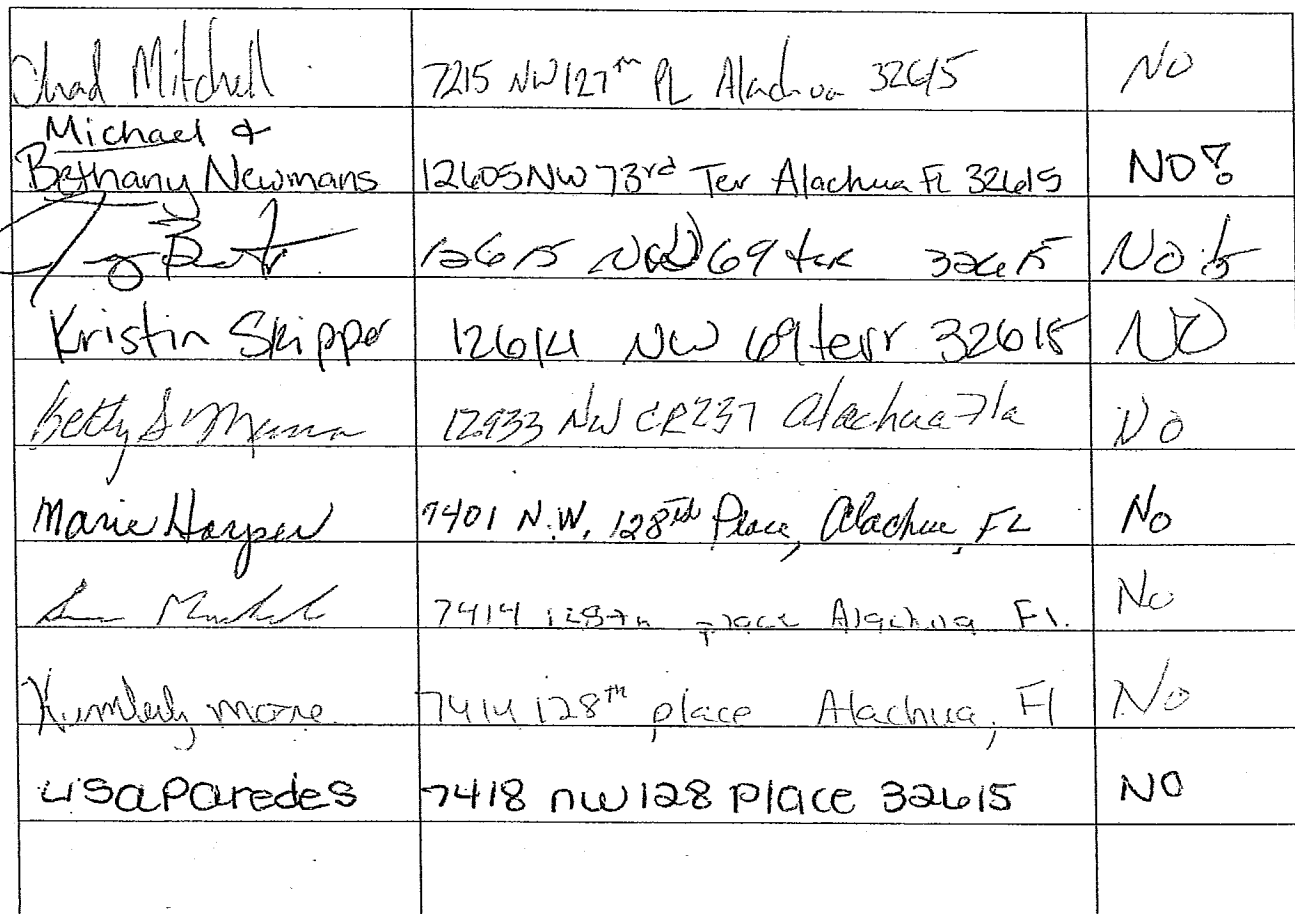 Chad Mitchell 7215 NW 127th PL Alachua 32615 No
Michael &
Bethany Newmans 12605 NW 73rd Ter Alachua FL 32615 NO!
12615 NW 69 ter 32615 No
Kristin Skipper 12614 NW 69 terr 32615 NO
Betty S 12933 NW CR237 Alachua Fla No
Marie Harper 7401 N.W. 128th Place, Alachua, FL No
7414 128th place Alachua Fl. No
Kimberly Moore 7414 128th place Alachua, Fl No
Lisa Paredes 7418 nw 128 Place 32615 NO